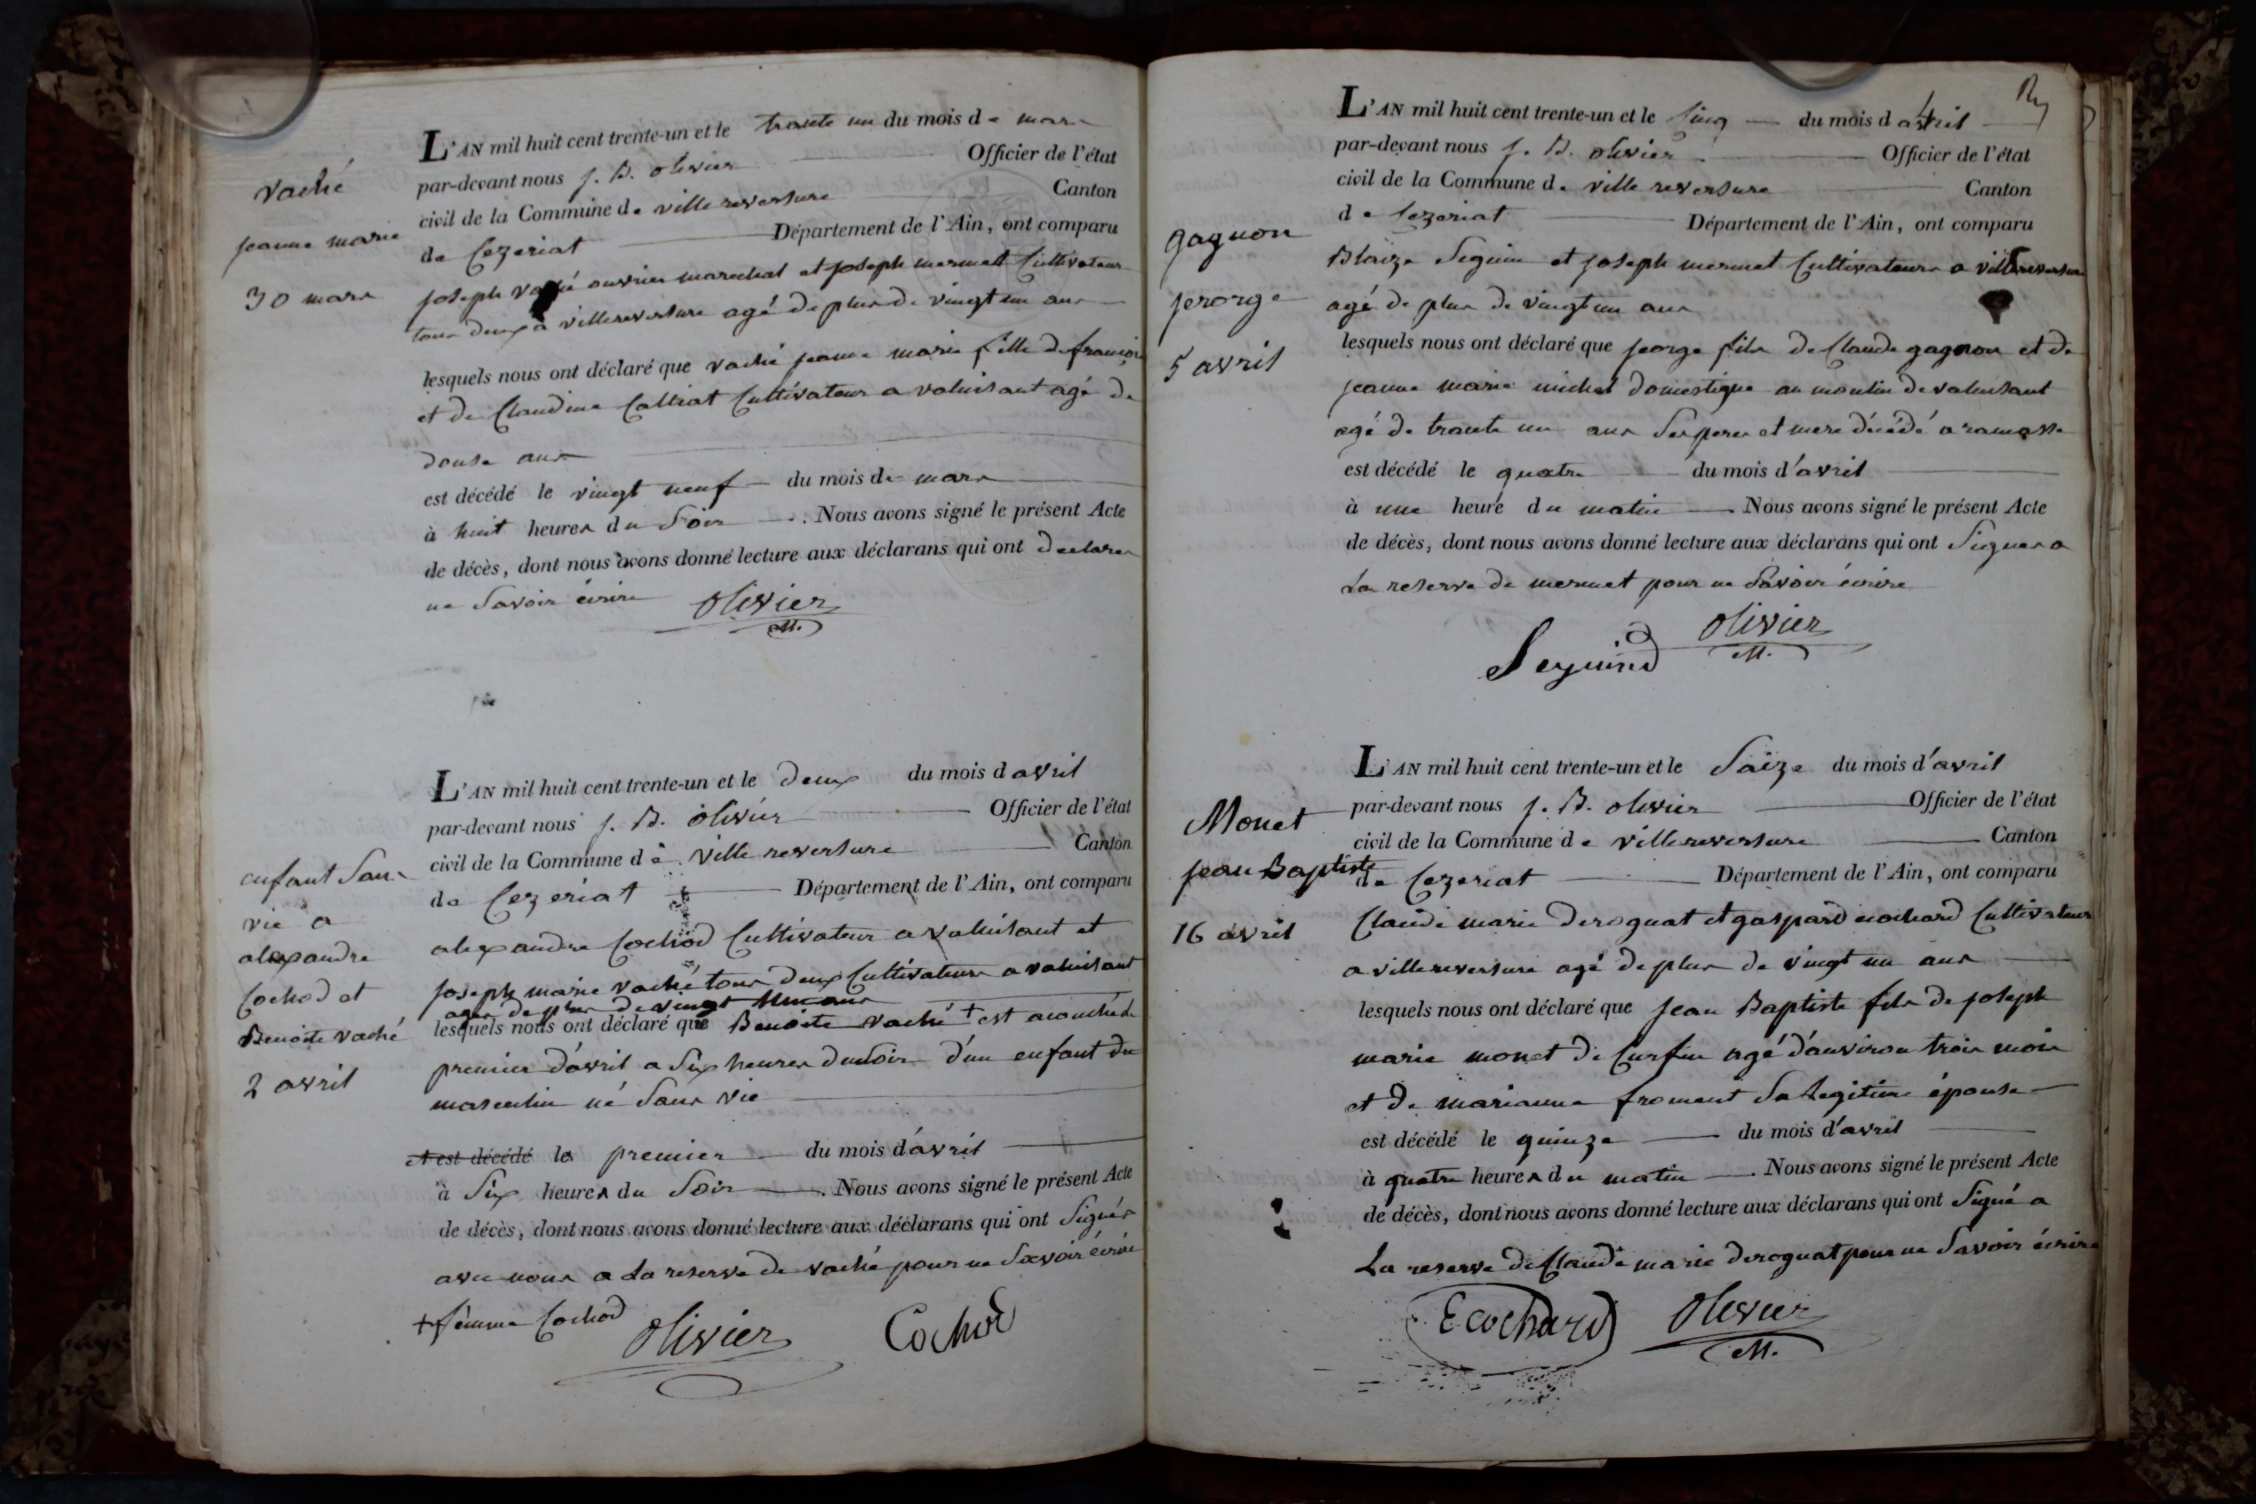 vaché
jeanne marie
30 mars
L'AN mil huit cent trente-un et le trante un du mois de mars
par-devant nous j. B. olivier Officier de l'état
civil de la Commune de ville reversure Canton
de Cezeriat Département de l'Ain, ont comparu
joseph vaché ouvrier marechal et joseph mermet Cultivateur
tous deux a villereversure agé de plus de vingt un ans
lesquels nous ont déclaré que vaché jeanne marie fille de françois
et de Claudine Caltiat Cultivateur a valuisant agé de
douse ans
est décédé le vingt neuf du mois de mars
à huit heures du Soir . Nous avons signé le présent Acte
de décès, dont nous avons donné lecture aux déclarans qui ont declarer
ne Savoir écrire olivier
M.
enfant Sans
vie a
alexandre
Cochod et
Benoite vaché
2 avril
L'AN mil huit cent trente-un et le deux du mois d avril
par-devant nous j. B. olivier Officier de l'état
civil de la Commune de ville reversure Canton
de Cezeriat Département de l'Ain, ont comparu
alexandre Cochod Cultivateur a valuisant et
joseph marie vaché tous deux Cultivateurs a valuisant
ages de plus de vingt un ans
lesquels nous ont déclaré que Benoite vaché + est acouché le
premier d'avril a Six heures du Soir d'un enfant du
masculin né Sans vie
et est décédé le premier du mois d'avril
à Six heures du Soir . Nous avons signé le présent Acte
de décès, dont nous avons donné lecture aux déclarans qui ont Signés
avec nous a La reserve de vaché pour ne Savoir écrire
+ femme Cochod
olivier Cochod
gagnon
jeorge
5 avril
L'AN mil huit cent trente-un et le Cinq du mois d avril
par-devant nous j. B. olivier Officier de l'état
civil de la Commune de ville reversure Canton
de Cezeriat Département de l'Ain, ont comparu
Blaize Seguin et joseph mermet Cultivateurs a villereversure
agé de plus de vingt un ans
lesquels nous ont déclaré que jeorge fils de Claude gagnon et de
jeanne marie michel domestique au moulin de valuisant
agé de trante un ans Ses peres et mere décédé a ramasse
est décédé le quatre du mois d'avril
à une heure du matin Nous avons signé le présent Acte
de décès, dont nous avons donné lecture aux déclarans qui ont Signer a
La reserve de mermet pour ne Savoir écrire
Seguin olivier
M.
Monet
jean Baptiste
16 avril
L'AN mil huit cent trente-un et le Saize du mois d'avril
par-devant nous j. B. olivier Officier de l'état
civil de la Commune de villereversure Canton
de Cezeriat Département de l'Ain, ont comparu
Claude marie deroguat et gaspard ecochard Cultivateurs
a villereversure agé de plus de vingt un ans
lesquels nous ont déclaré que jean Baptiste fils de joseph
marie monet de Curfin agé d'anviron trois mois
et de marianne froment Sa Legitime épouse
est décédé le quinze du mois d'avril
à quatre heures du matin . Nous avons signé le présent Acte
de décès, dont nous avons donné lecture aux déclarans qui ont Signé a
La reserve de Claude marie deroguat pour ne Savoir écrire
Ecochard olivier
M.